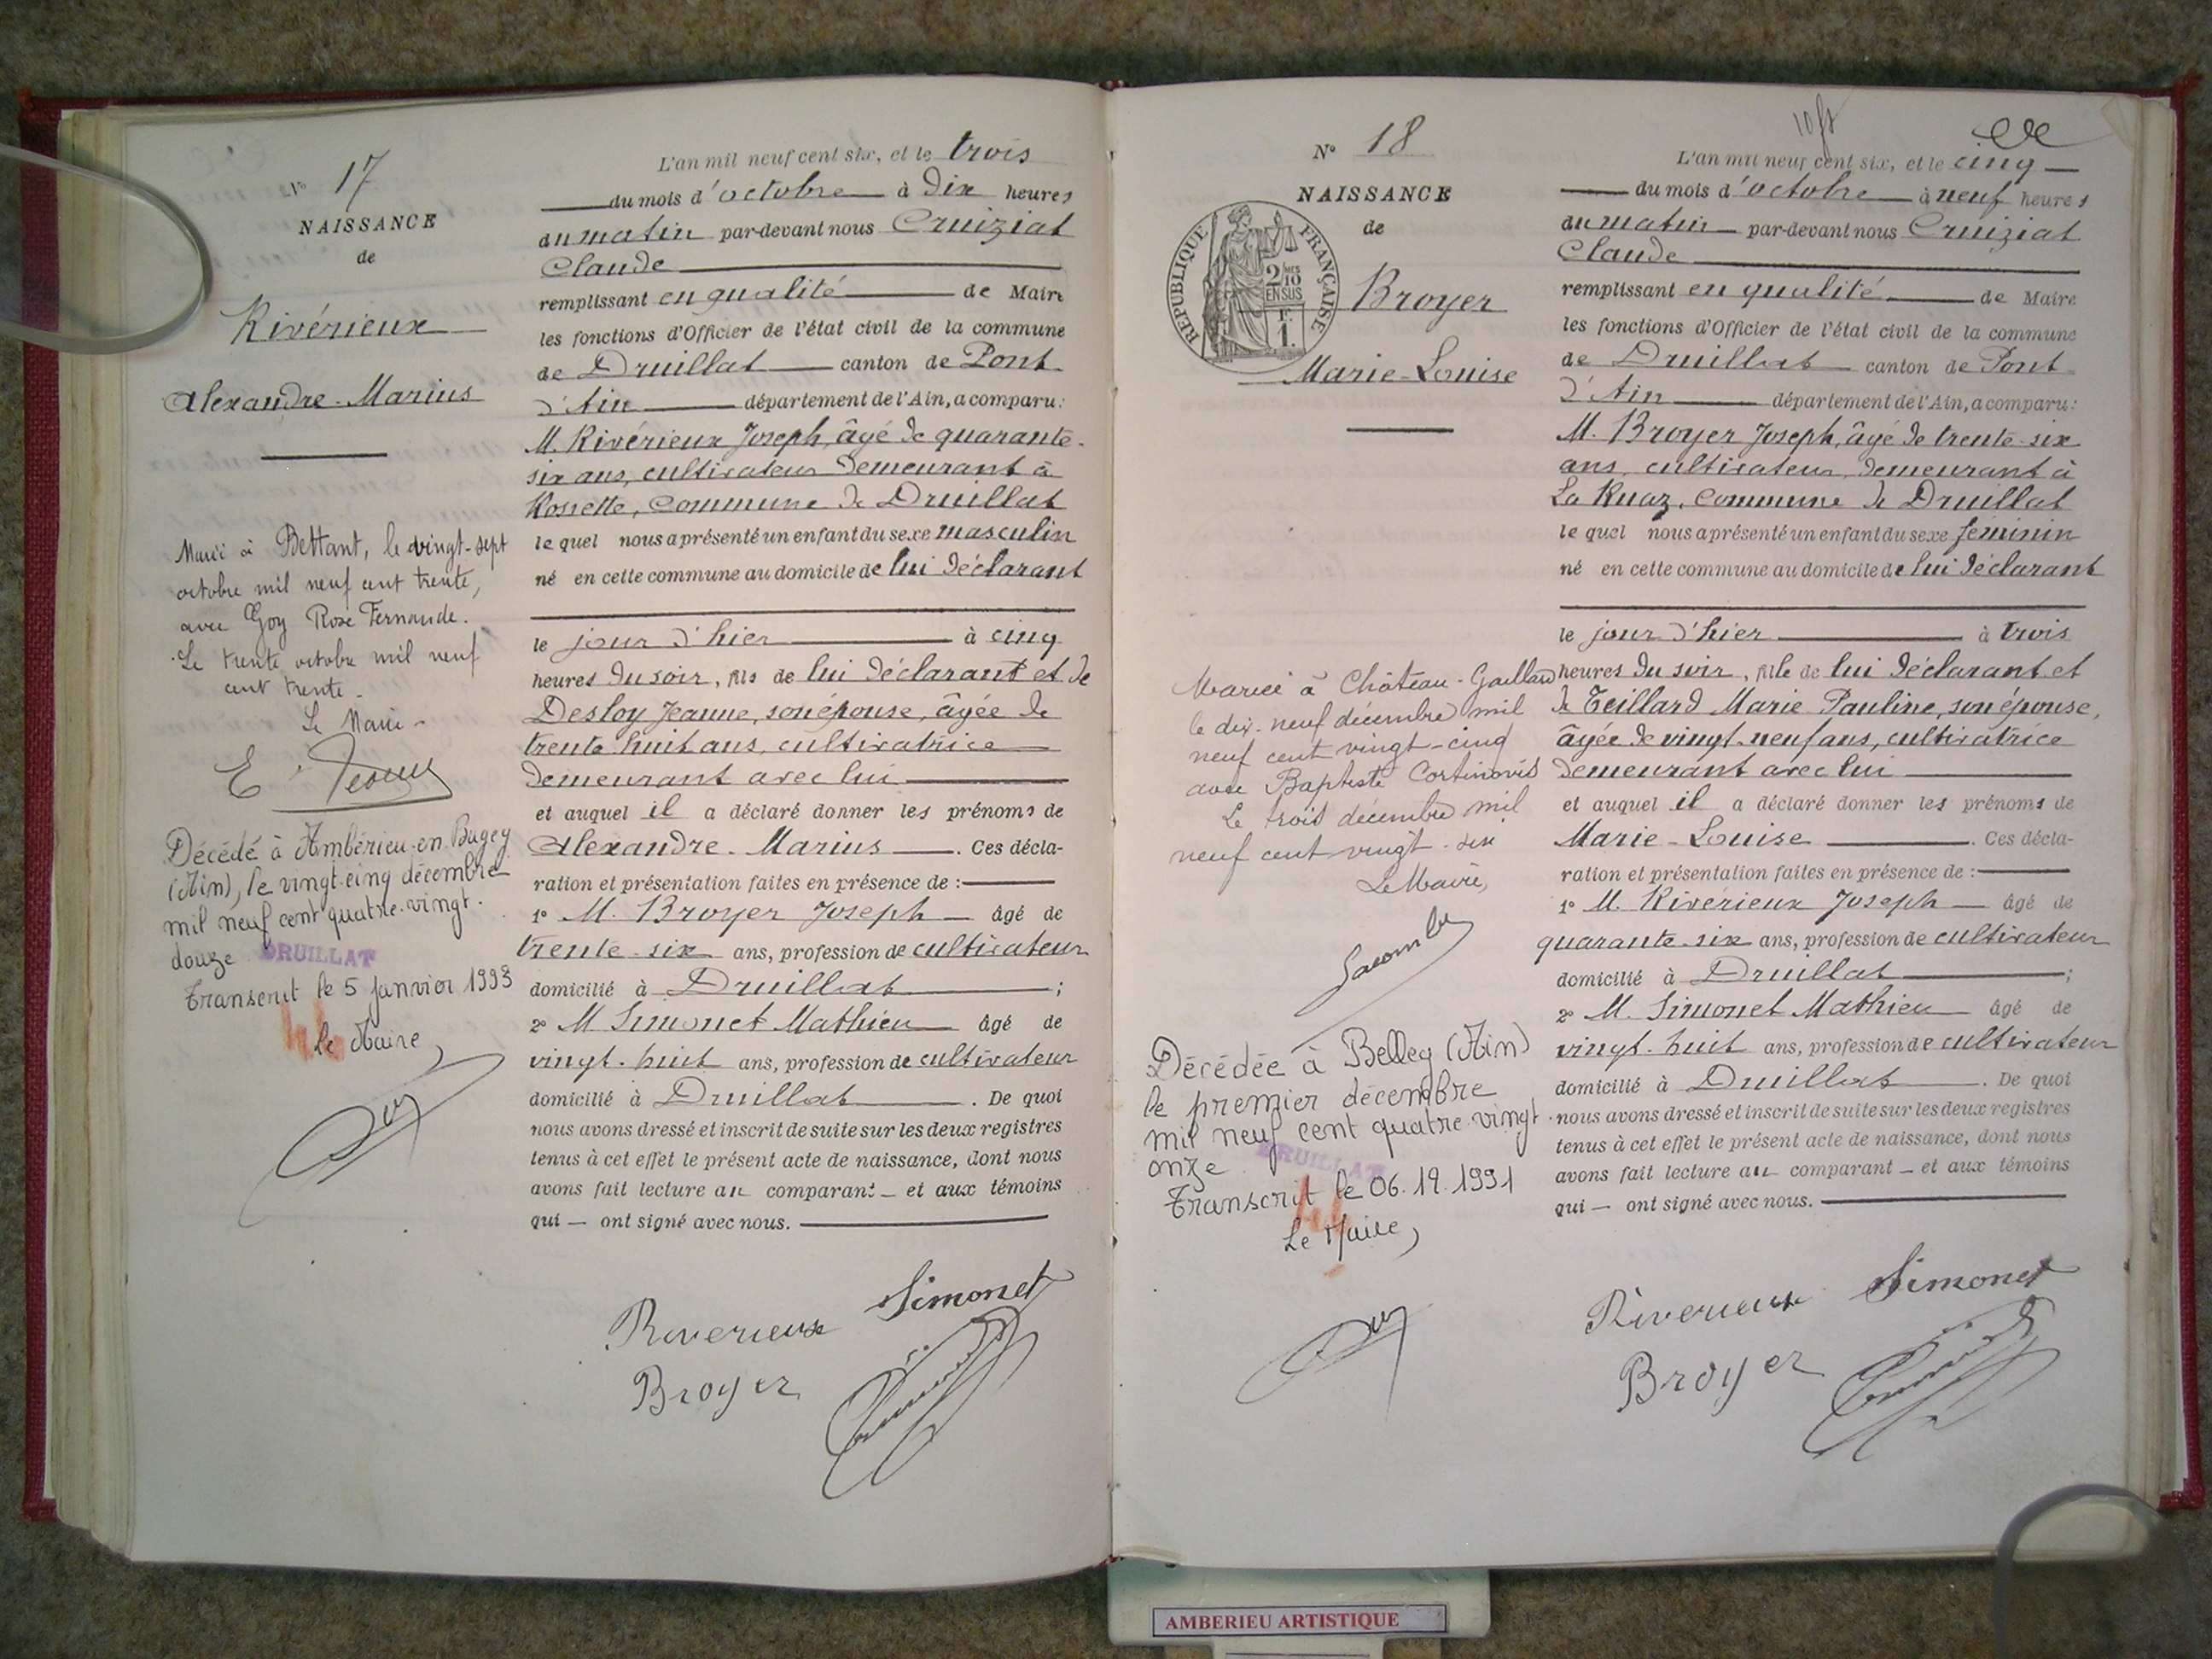 N° 17
NAISSANCE
de
Rivérieux
Alexandre-Marius
Marié à Bettant, le vingt-sept
octobre mil neuf cent trente,
avec Goy Rose Fernande.
Le trente octobre mil neuf
cent trente.
Le Maire
Décédé à Ambérieu-en-Bugey
(Ain), le vingt-cinq décembre
mil neuf cent quatre-vingt.
douze
DRUILLAT
Transcrit le 5 Janvier 1993
Le Maire,
L'an mil neuf cent six, et le trois
du mois d'octobre à dix heures
du matin par-devant nous Cruiziat
Claude
remplissant en qualité de Maire
les fonctions d'Officier de l'état civil de la commune
de Druillat canton de Pont
d'Ain département de l'Ain, a comparu:
M. Rivérieux Joseph, âgé de quarante-
six ans, cultivateur demeurant à
Rossette, commune de Druillat
le quel nous a présenté un enfant du sexe masculin
né en cette commune au domicile de lui déclarant
le jour d'hier à cinq
heures du soir, fils de lui déclarant et de
Desloy Jeanne, son épouse, âgée de
trente huit ans, cultivatrice
demeurant avec lui
et auquel il a déclaré donner les prénoms de
Alexandre-Marius. Ces décla-
ration et présentation faites en présence de :
1° M. Broyer Joseph âgé de
trente-six ans, profession de cultivateur
domicilié à Druillat ;
2° M Simonet Mathieu âgé de
vingt-huit ans, profession de cultivateur
domicilié à Druillat . De quoi
nous avons dressé et inscrit de suite sur les deux registres
tenus à cet effet le présent acte de naissance, dont nous
avons fait lecture au comparant et aux témoins
qui ont signé avec nous.
Riverieux Simonet
Broyer
N° 18
NAISSANCE
de
REPUBLIQUE FRANÇAISE
2 10 EN SUS
F. 1.
Broyer
Marie-Louise
Mariée à Château-Gaillard
le dix-neuf décembre mil
neuf cent vingt-cinq
avec Baptiste Cortinovis
Le trois décembre mil
neuf cent vingt-six
Le Maire,
Décédée à Belley (Ain)
le premier décembre
mil neuf cent quatre vingt
onze
DRUILLAT
Transcrit le 06.12.1991
Le Maire,
L'an mil neuf cent six, et le cinq
du mois d'octobre à neuf heures
du matin par-devant nous Cruiziat
Claude
remplissant en qualité de Maire
les fonctions d'Officier de l'état civil de la commune
de Druillat canton de Pont
d'Ain département de l'Ain, a comparu:
M. Broyer Joseph, âgé de trente-six
ans, cultivateur, demeurant à
La Ruaz, commune de Druillat
le quel nous a présenté un enfant du sexe féminin
né en cette commune au domicile de lui déclarant
le jour d'hier à trois
heures du soir, fille de lui déclarant et
de Teillard Marie Pauline, son épouse,
âgée de vingt-neuf ans, cultivatrice
demeurant avec lui
et auquel il a déclaré donner les prénoms de
Marie-Louise . Ces décla-
ration et présentation faites en présence de :
1° M. Rivérieux Joseph âgé de
quarante-six ans, profession de cultivateur
domicilié à Druillat ;
2° M. Simonet Mathieu âgé de
vingt-huit ans, profession de cultivateur
domicilié à Druillat . De quoi
nous avons dressé et inscrit de suite sur les deux registres
tenus à cet effet le présent acte de naissance, dont nous
avons fait lecture au comparant et aux témoins
qui ont signé avec nous.
Riverieux Simonet
Broyer
AMBERIEU ARTISTIQUE